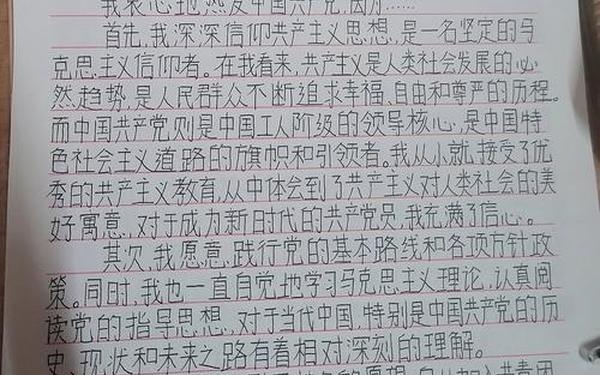 我衷心地热爱中国共产党,因为……
首先,我深深信仰共产主义思想,是一名坚定的马
克思主义信仰者。在我看来,共产主义是人类社会发展的必
然趋势,是人民群众不断追求幸福、自由和尊严的历程。
而中国共产党则是中国工人阶级的领导核心,是中国特
色社会主义道路的旗帜和引领者。我从小就接受了优
秀的共产主义教育,从中体会到了共产主义对人类社会的美
好寓意,对于成为新时代的共产党员,我充满了信心。
其次,我愿意践行党的基本路线和各项方针政
策。同时,我也一直自觉地学习马克思主义理论,认真阅
读党的指导思想,对于当代中国,特别是中国共产党的历
史、现状和未来之路有着相对深刻的理解。